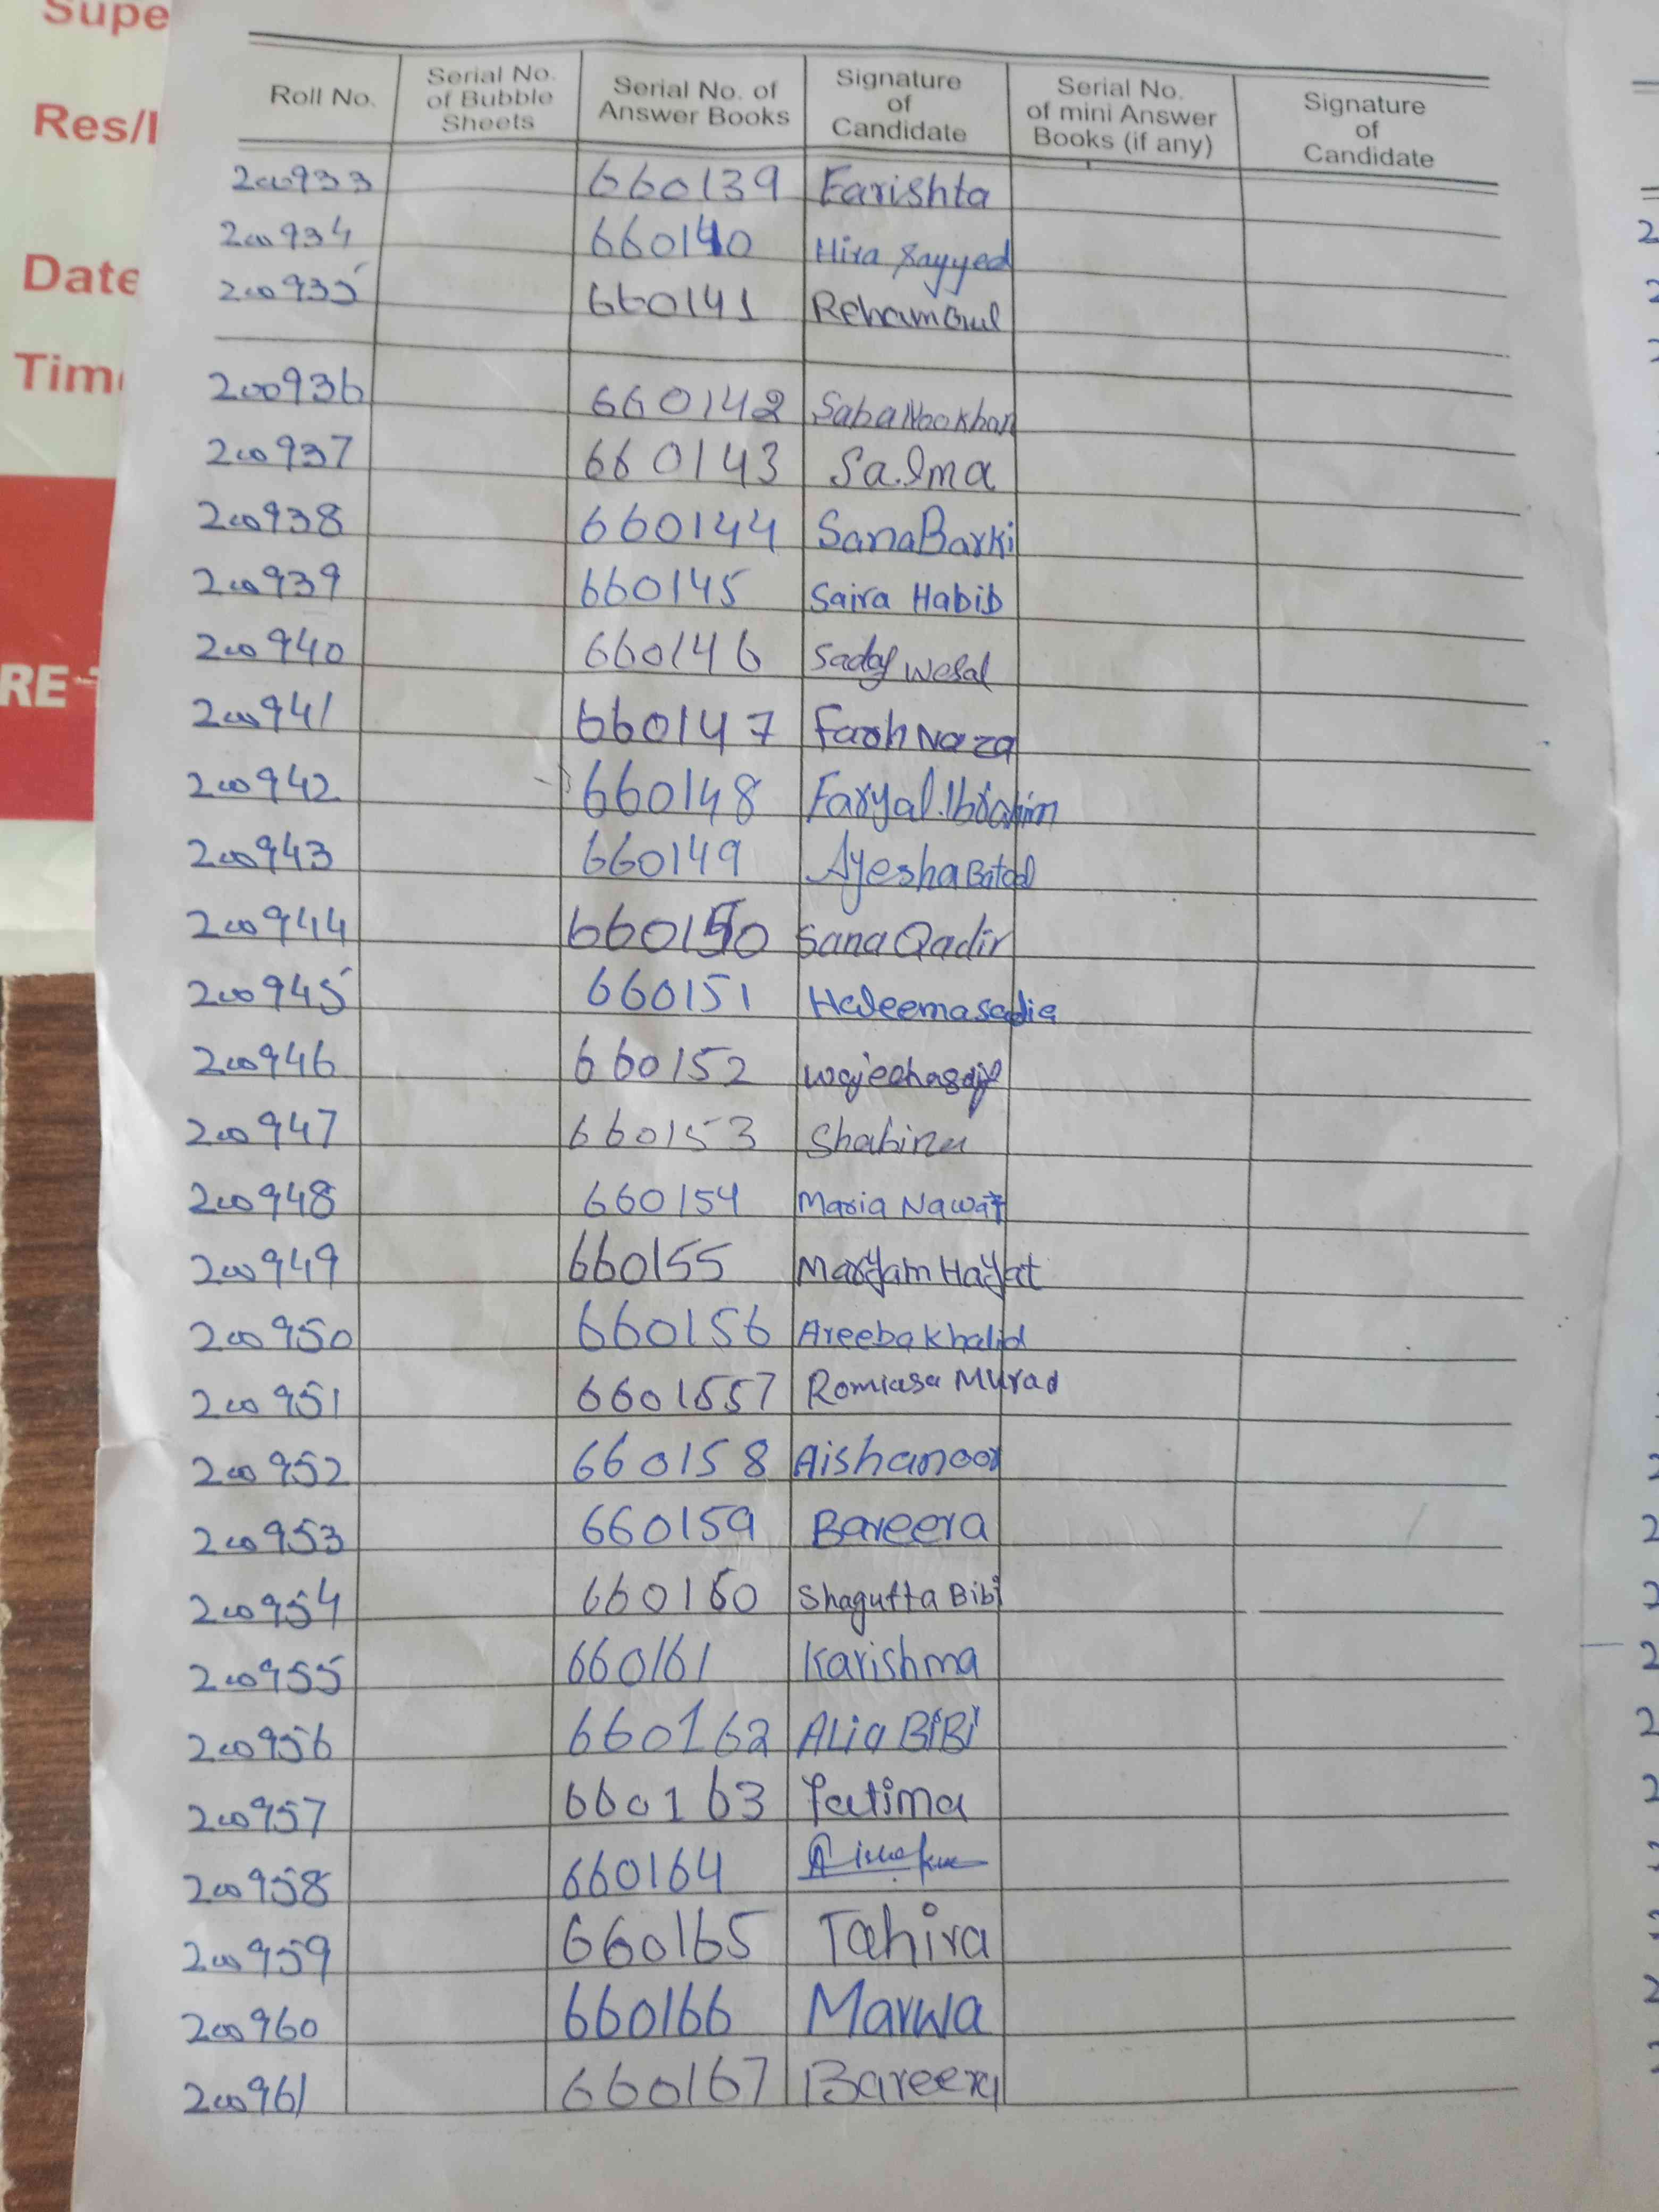 Supe
Res/I
Date
Tim
RE
Roll No. Serial No. of Bubble Sheets Serial No. of Answer Books Signature of Candidate Serial No. of mini Answer Books (if any) Signature of Candidate
200933 660139 Farishta
200934 660140 Hira Sayyed
200935 660141 Reham Gul
200936 660142 Saba Noo Khan
200937 660143 Salma
200938 660144 Sana Barki
200939 660145 Saira Habib
200940 660146 Sadaf Wesal
200941 660147 Farah Naza
200942 660148 Faryal Ibrahim
200943 660149 Ayesha Batool
200944 660150 Sana Qadir
200945 660151 Haleema Sadia
200946 660152
200947 660153 Shabina
200948 660154 Maria Nawaz
200949 660155 Maryam Hayat
200950 660156 Areeba Khalid
200951 6601557 Romiasa Murad
200952 660158 Aishanoor
200953 660159 Bareera
200954 660160 Shagufta Bibi
200955 660161 Karishma
200956 660162 Alia BiBi
200957 660163 Fatima
200958 660164
200959 660165 Tahira
200960 660166 Marwa
200961 660167 Bareera